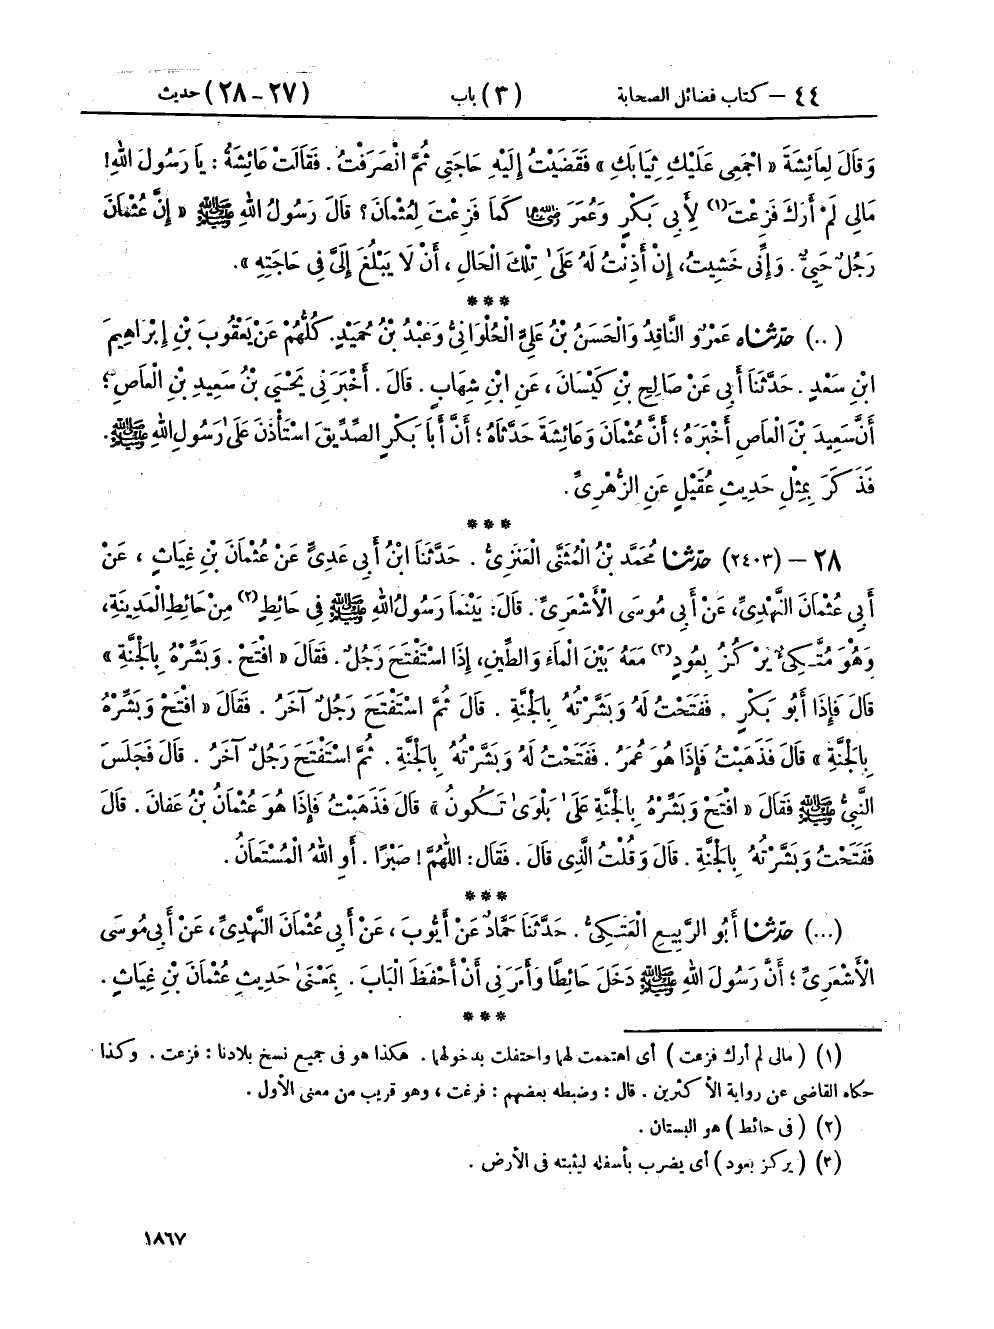 ٤٤ – كتاب فضائل الصحابة (٣) باب (٢٧-٢٨) حديث
وَقَالَ لِعَائِشَةَ « اجْمَعِى عَلَيْكِ ثِيَابَكِ » فَقَضَيْتُ إِلَيْهِ حَاجَتِى ثُمَّ انْصَرَفْتُ . فَقَالَتْ عَائِشَةُ : يَا رَسُولَ اللهِ !
مَالِى لَمْ أَرَكَ فَزِعْتَ(١) لِأَبِى بَكْرٍ وَعُمَرَ رضي الله عنهما كَمَا فَزِعْتَ لِعُثْمَانَ ؟ قَالَ رَسُولُ اللهِ ﷺ « إِنَّ عُثْمَانَ
رَجُلٌ حَيِىٌّ . وَإِنِّى خَشِيتُ ، إِنْ أَذِنْتُ لَهُ عَلَىٰ تِلْكَ الْحَالِ ، أَنْ لَا يَبْلُغَ إِلَىَّ فِى حَاجَتِهِ » .
***
(..) حَدَّثَنَاه عَمْرٌو النَّاقِدُ وَالْحَسَنُ بْنُ عَلِىٍّ الْحُلْوَانِىُّ وَعَبْدُ بْنُ حُمَيْدٍ . كُلُّهُمْ عَنْ يَعْقُوبَ بْنِ إِبْرَاهِيمَ
ابْنِ سَعْدٍ . حَدَّثَنَا أَبِى عَنْ صَالِحِ بْنِ كَيْسَانَ ، عَنِ ابْنِ شِهَابٍ . قَالَ . أَخْبَرَنِى يَحْيَىٰ بْنُ سَعِيدِ بْنِ الْعَاصِ ؛
أَنَّ سَعِيدَ بْنَ الْعَاصِ أَخْبَرَهُ ؛ أَنَّ عُثْمَانَ وَعَائِشَةَ حَدَّثَاهُ ؛ أَنَّ أَبَا بَكْرٍ الصِّدِّيقَ اسْتَأْذَنَ عَلَىٰ رَسُولِ اللهِ ﷺ .
فَذَكَرَ بِمِثْلِ حَدِيثِ عُقَيْلٍ عَنِ الزُّهْرِىِّ .
***
٢٨ – (٢٤٠٣) حَدَّثَنَا مُحَمَّدُ بْنُ الْمُثَنَّى الْعَنَزِىُّ . حَدَّثَنَا ابْنُ أَبِى عَدِىٍّ عَنْ عُثْمَانَ بْنِ غِيَاثٍ ، عَنْ
أَبِى عُثْمَانَ النَّهْدِىِّ ، عَنْ أَبِى مُوسَى الْأَشْعَرِىِّ . قَالَ : بَيْنَمَا رَسُولُ اللهِ ﷺ فِى حَائِطٍ(٢) مِنْ حَائِطِ الْمَدِينَةِ ،
وَهُوَ مُتَّكِئٌ يَرْكُزُ بِعُودٍ(٣) مَعَهُ بَيْنَ الْمَاءِ وَالطِّينِ ، إِذَا اسْتَفْتَحَ رَجُلٌ . فَقَالَ « افْتَحْ . وَبَشِّرْهُ بِالْجَنَّةِ »
قَالَ فَإِذَا أَبُو بَكْرٍ . فَفَتَحْتُ لَهُ وَبَشَّرْتُهُ بِالْجَنَّةِ . قَالَ ثُمَّ اسْتَفْتَحَ رَجُلٌ آخَرُ . فَقَالَ « افْتَحْ وَبَشِّرْهُ
بِالْجَنَّةِ » قَالَ فَذَهَبْتُ فَإِذَا هُوَ عُمَرُ . فَفَتَحْتُ لَهُ وَبَشَّرْتُهُ بِالْجَنَّةِ . ثُمَّ اسْتَفْتَحَ رَجُلٌ آخَرُ . قَالَ فَجَلَسَ
النَّبِىُّ ﷺ فَقَالَ « افْتَحْ وَبَشِّرْهُ بِالْجَنَّةِ عَلَىٰ بَلْوَىٰ تَكُونُ » قَالَ فَذَهَبْتُ فَإِذَا هُوَ عُثْمَانُ بْنُ عَفَانَ . قَالَ
فَفَتَحْتُ وَبَشَّرْتُهُ بِالْجَنَّةِ . قَالَ وَقُلْتُ الَّذِى قَالَ . فَقَالَ : اللّٰهُمَّ ! صَبْرًا . أَوِ اللهُ الْمُسْتَعَانُ .
***
(...) حَدَّثَنَا أَبُو الرَّبِيعِ الْعَتَكِىُّ . حَدَّثَنَا حَمَّادٌ عَنْ أَيُّوبَ ، عَنْ أَبِى عُثْمَانَ النَّهْدِىِّ ، عَنْ أَبِى مُوسَى
الْأَشْعَرِىِّ ؛ أَنَّ رَسُولَ اللهِ ﷺ دَخَلَ حَائِطًا وَأَمَرَنِى أَنْ أَحْفَظَ الْبَابَ . بِمَعْنَىٰ حَدِيثِ عُثْمَانَ بْنِ غِيَاثٍ .
***
(١) ( مالى لم أرك فزعت ) أى اهتممت لهما واحتفلت بدخولهما . هكذا هو فى جميع نسخ بلادنا : فزعت . وكذا
حكاه القاضى عن رواية الأكثرين . قال : وضبطه بعضهم : فرغت ، وهو قريب من معنى الأول .
(٢) ( فى حائط ) هو البستان .
(٣) ( يركز بعود ) أى يضرب بأسفله ليثبته فى الأرض .
١٨٦٧